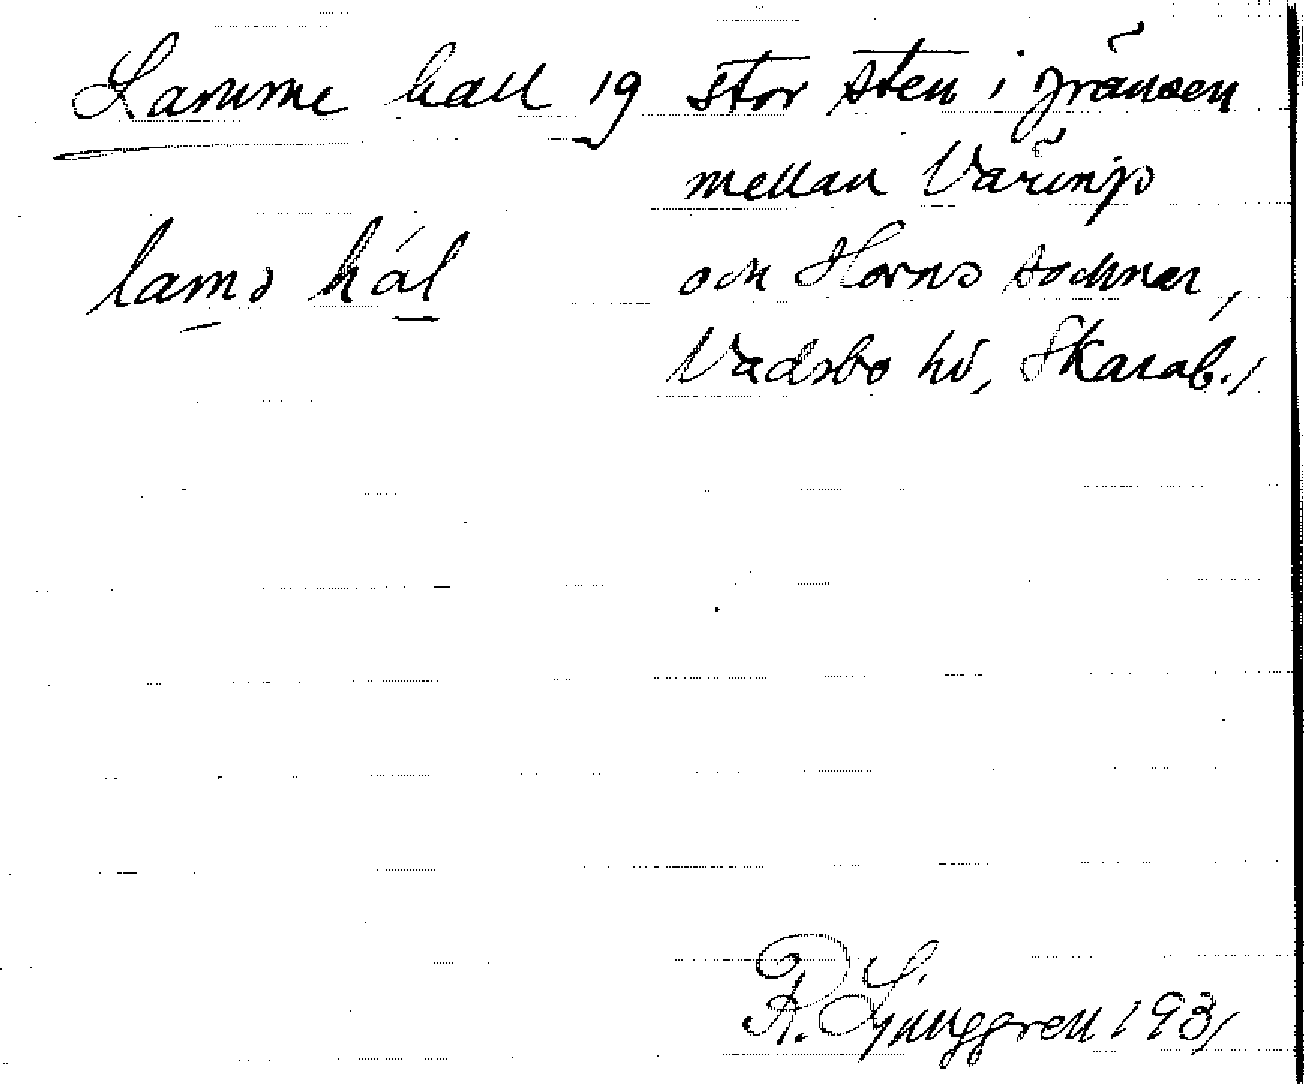 Lamme hall 19 stor sten i gränsen
mellan Värings
lamə hál och Horns socknar,
Vadsbo hd, Skarab. /
R. Ljunggren 1931